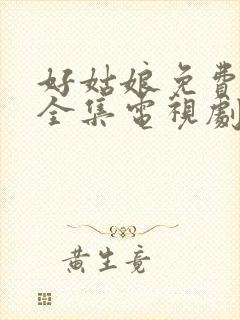 好姑娘免費
全集電視劇
黄生竟